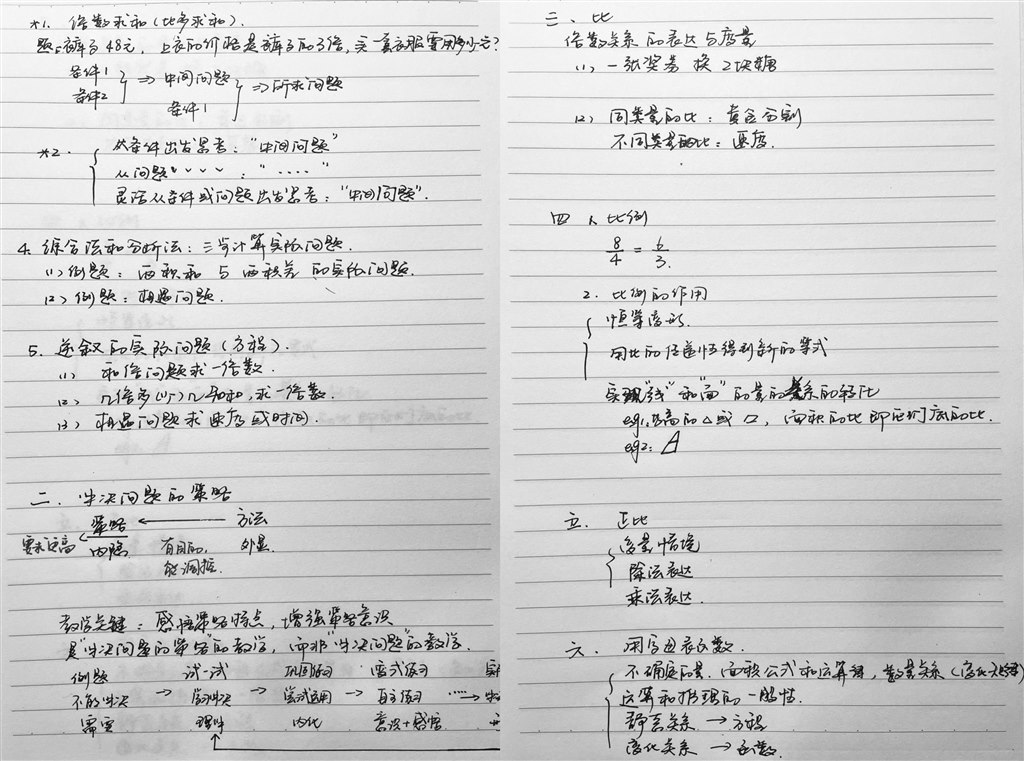 *1. 倍数求和(比多求和).
题:裤子48元,上衣的价格是裤子的3倍,买一套衣服需要用多少元?
条件1
条件2 } => 中间问题
条件1 } => 所求问题
*2. 从条件出发思考:"中间问题"
从问题" 〃 〃 〃 〃 :" ...."
灵活从条件或问题出发思考:"中间问题".
4. 综合法和分析法:三步计算实际问题.
(1) 例题:面积和 与 面积差 的实际问题.
(2) 例题:相遇问题.
5. 逆叙的实际问题(方程).
(1) 和倍问题求一倍数.
(2) 几倍多(少)几与和,求一倍数.
(3) 相遇问题求速度或时间.
二. 解决问题的策略
策略 ← 方法
要求更高 ← 内隐 有目的, 外显.
能调控.
教学关键:感悟策略特点,增强策略意识
是"解决问题的策略"的教学,而非"解决问题"的教学.
例题 试一试 巩固练习 变式练习
不能解决 → 尝试解决 → 尝试运用 → 自主练习 ……→
需要 理解 内化 意识+感悟
三、比
倍数关系的表达与度量
(1) 一张奖券 换 2块糖
(2) 同类量的比:黄金分割
不同类量的比:速度.
四、比例
8/4 = 6/3.
2. 比例的作用
恒等变形.
用比的传递性得到新的等式
实现"线"和"面"的量的关系的转化
eg1:等高的△或▱,面积的比即它们底的比.
eg2:
五. 正比
变量情境
除法表达
乘法表达.
六. 用字母表示数
不确定的量.面积公式和运算律,数量关系
运算和推理的一般性.
静态关系 → 方程
变化关系 → 函数.